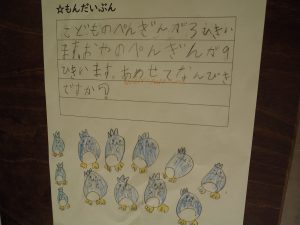 ☆もんだいぶん
こどものぺんぎんが3びきい
ます。おやのぺんぎんが9
ひきいます。あわせてなんびき
ですか。